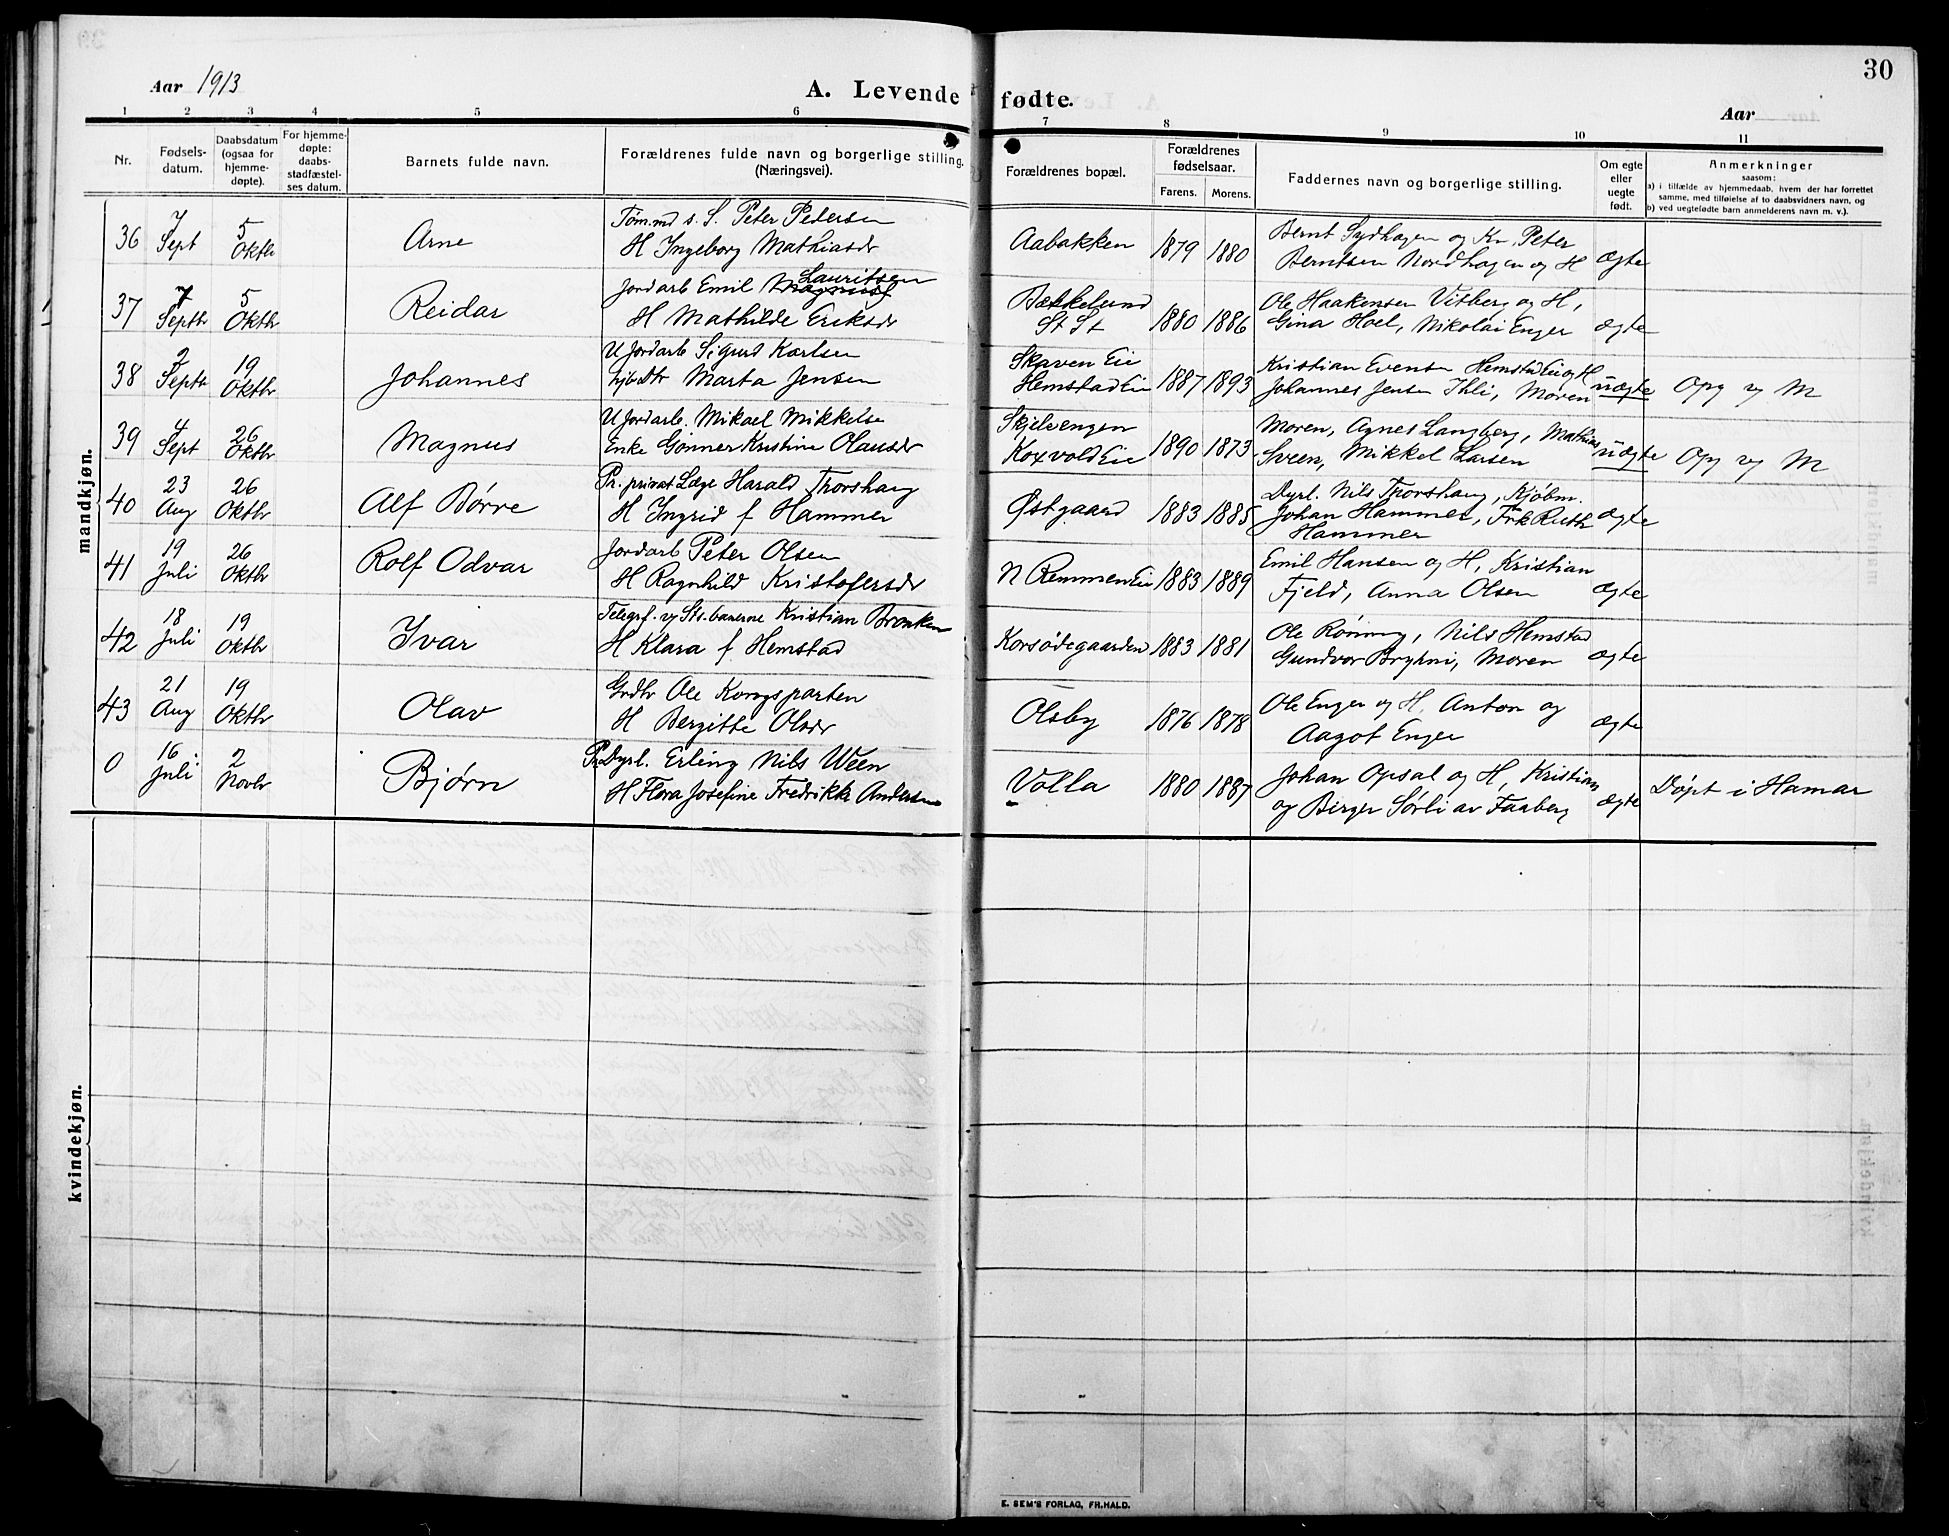 Aar 1913
A. Levende fødte.
Aar
30
1 2 3 4 5 6 7 8 9 10 11
Nr.
Fødsels-
datum.
Daabsdatum
(ogsaa for
hjemme-
døpte).
For hjemme-
døpte:
daabs-
stadfæstel-
ses datum.
Barnets fulde navn.
Forældrenes fulde navn og borgerlige stilling.
(Næringsvei).
Forældrenes bopæl.
Forældrenes
fødselsaar.
Farens. Morens.
Faddernes navn og borgerlige stilling.
Om egte
eller
uegte
født.
Anmerkninger
saasom:
a) i tilfælde av hjemmedaab, hvem der har forrettet
samme, med tilføielse af to daabsvidners navn, og
b) ved uegtefødte barn anmelderens navn m. v.).
mandkjøn.
36 7 Sept 5 Oktbr Arne
Tøm.md s. S. Peter Pedersen
H Ingeborg Mathiasdr
Aabakken 1879 1880
Bernt Sydhagen og Kr. Peter
Berntsen Nordhagen og H
ægte
37 7 Septbr 5 Oktbr Reidar
Jordarb Emil Magnus Lauritsen
H Mathilde Eriksdr
Bækkelund
St St
1880 1886
Ole Haakensen Vitberg og H,
Gina Hoel, Nikolai Enger
ægte
38 2 Septbr 19 Oktbr Johannes
U Jordarb Sigurd Karlsen
Marta Jensen
Skaven Eie
Hemstad Eie
1887 1893
Kristian Evensen Hemstad Eie og H
Johannes Jensen Ihli, Moren
uægte
Opg v M
39 4 Sept 26 Oktbr Magnus
U Jordarb. Mikael Mikkelse
Enke Gønner Kristine Olausdr
Skjelvengen
Koxvold Eie
1890 1873
Moren, Agnes Langberg, Mathias
Sveen, Mikkel Larsen
uægte
Opg v M
40 23 Aug 26 Oktbr Alf Børre
Pr. privat Læge Harald Thorshaug
H Ingrid f Hammer
Østgaard 1883 1885
Dyrl. Nils Thorshaug, Kjøbm.
Johan Hammer, Frk Ruth
Hammer
ægte
41 19 Juli 26 Oktbr Rolf Odvar
Jordarb Peter Olsen
H Ragnhild Kristofersdr
N Remmen Eie 1883 1889
Emil Hansen og H, Kristian
Fjeld, Anna Olsen
ægte
42 18 Juli 19 Oktbr Ivar
Telegrf. v Sts.banerne Kristian Bronken
H Klara f Hemstad
Korsødegaarden 1883 1881
Ole Røning, Nils Hemstad
Gundvor Bryhni, Moren
ægte
43 21 Aug 19 Oktbr Olav
Grdbr Ole Korsgsparten
H Bergitte Olsdr
Olsby 1876 1878
Ole Enger og H. Anton og
Aagot Enger
ægte
0 16 Juli 2 Novbr Bjørn
Pr Dyrl. Erling Nils Ween
H Flora Josefine Fredrikke Andersen
Volla 1880 1887
Johan Opsal og H, Kristian
og Birger Sørli av Faaberg
ægte
Døpt i Hamar
kvindekjøn.
E. SEM'S FORLAG, FR.HALD.